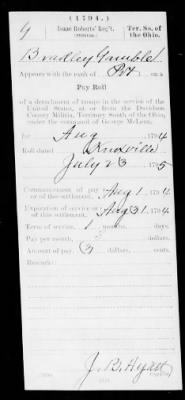 (1794.)
G | Isaac Roberts' Reg't, | Ter. So. of the Ohio.
Bradley Gambill
Appears with the rank of Pvt. on a
Pay Roll
of a detachment of troops in the service of the
United States, at or from the Davidson
County Militia, Territory South of the Ohio,
under the command of George McLean,
for Aug, 1794
Roll dated Knoxville
July 23 1795
Commencement of pay Aug 1, 1794
Expiration of service or of this settlement, Aug 31, 1794
Term of service, 1 months, days.
Pay per month, 3 dollars,
Amount of pay, 3 dollars, cents.
Remarks:
J. B. Hyatt